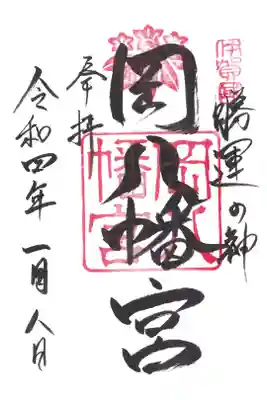 伊賀國
勝運の神
岡八幡宮
岡八幡宮
奉拝
令和四年一月八日